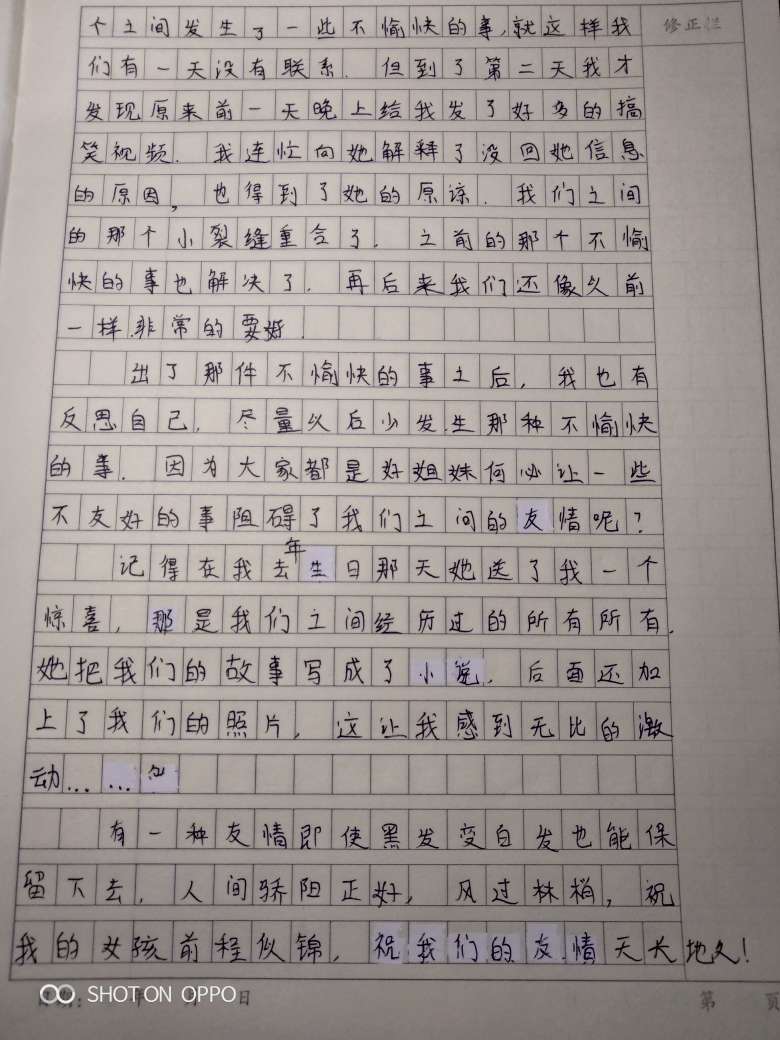 个之间发生了一些不愉快的事,就这样我
修正栏
们有一天没有联系. 但到了第二天我才
发现原来前一天晚上给我发了好多的搞
笑视频. 我连忙向她解释了没回她信息
的原因, 也得到了她的原谅. 我们之间
的那个小裂缝重合了. 之前的那个不愉
快的事也解决了. 再后来我们还像久前
一样.非常的要好.
出了那件不愉快的事之后, 我也有
反思自己. 尽量以后少发生那种不愉快
的事. 因为大家都是好姐妹何必让一些
不友好的事阻碍了我们之间的友情呢?
记得在我去年生日那天她送了我一个
惊喜, 那是我们之间经历过的所有所有.
她把我们的故事写成了小说. 后面还加
上了我们的照片. 这让我感到无比的激
动... ...
有一种友情即使黑发变白发也能保
留下去. 人间骄阳正好, 风过林梢, 祝
我的女孩前程似锦, 祝我们的友情天长地久!
SHOT ON OPPO
年 月 日
第 页